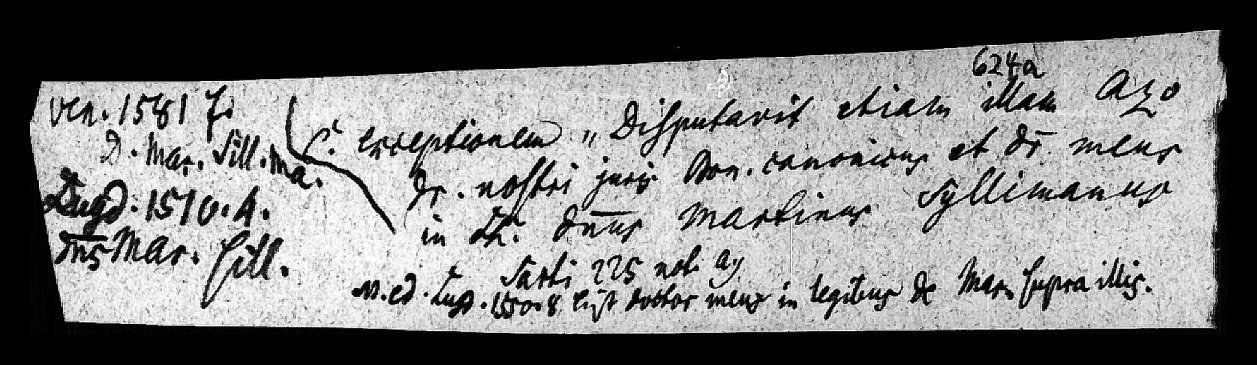 624a
Ven. 1581 f.
D. Mar. Sill. ma.
Lugd. 1510. 4.
dns Mar. Sill.
c. exceptionem „ Disputavit etiam illam Azo
dr. nostri juris Bon. canonicus et dr meus
in th. dnus Martinus Syllimanus
Sarti 225 not. a)
ed. Lugd. 1550. 8 doctor meus in legibus de Mar. supra illis.